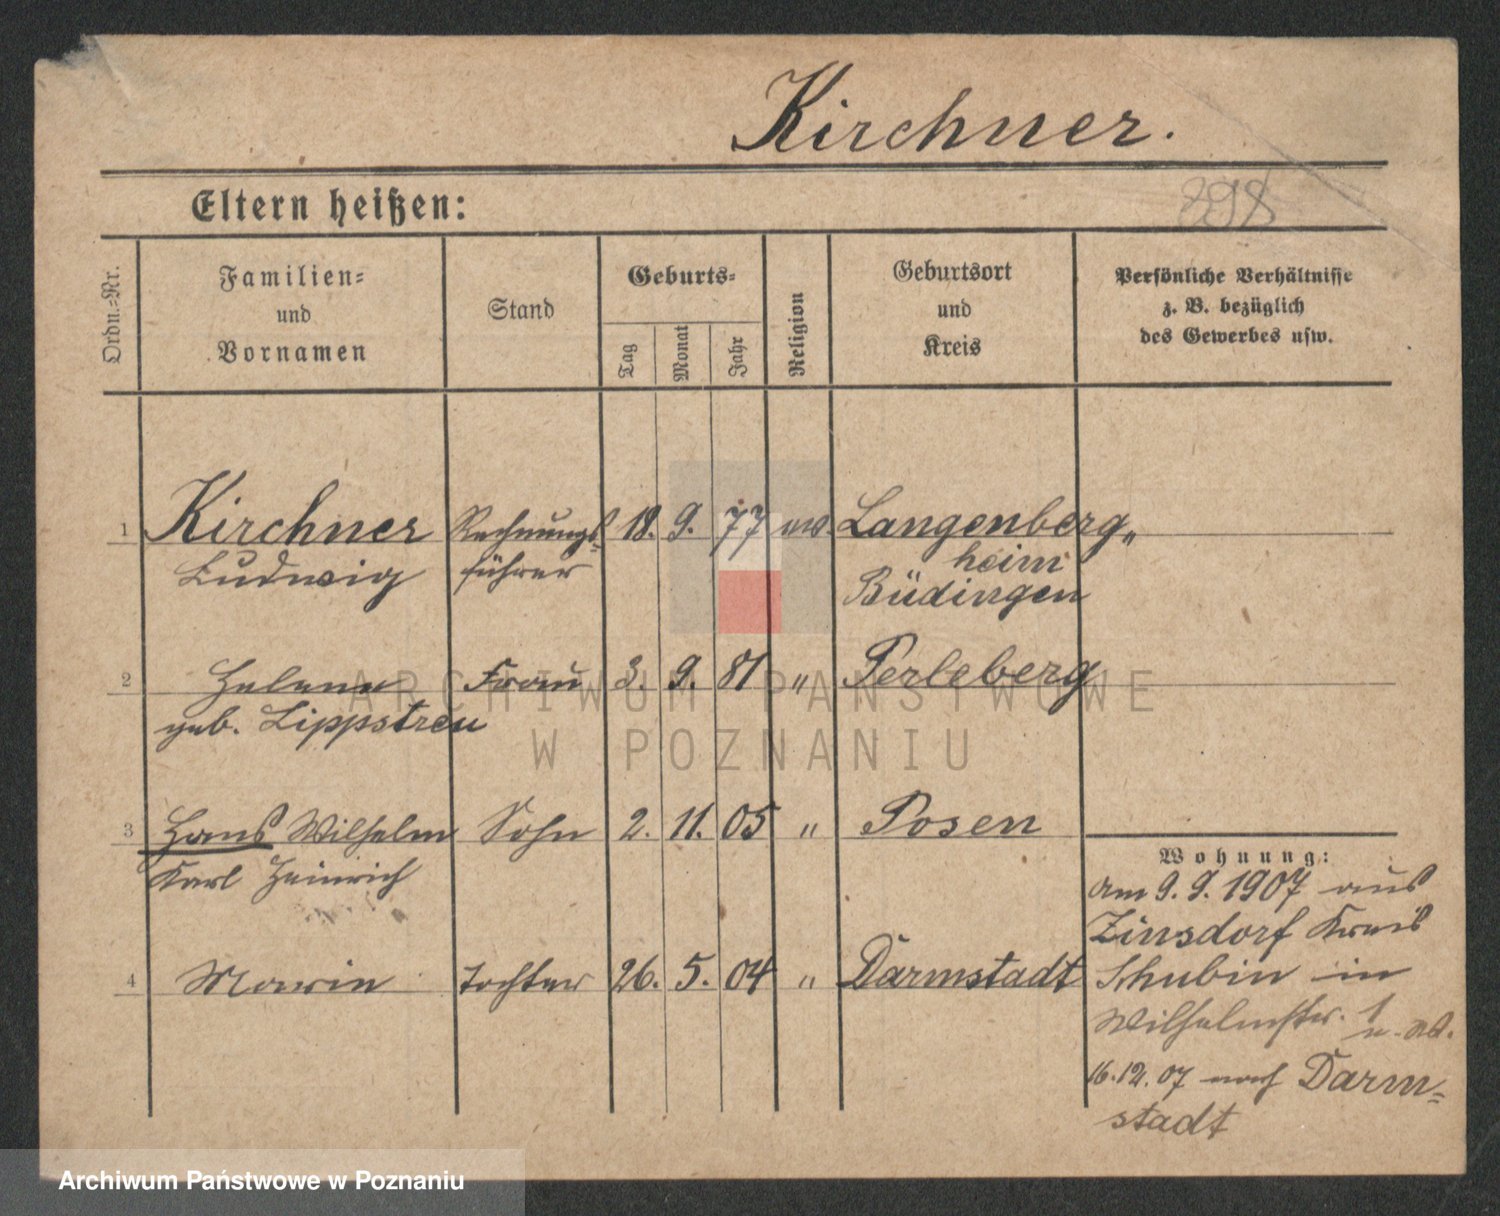 Kirchner.
298
Eltern heißen:
Ordn.=Nr.
Familien=
und
Vornamen
Stand
Geburts=
Tag
Monat
Jahr
Religion
Geburtsort
und
Kreis
Persönliche Verhältnisse
z. B. bezüglich
des Gewerbes usw.
1 Kirchner Rechnungs= 18. 9. 77 ev. Langenberg„
Ludwig führer heim
Büdingen
2 Helene Frau 3. 9. 81 " Perleberg
geb. Lippstreu
3 Hans Wilhelm Sohn 2. 11. 05 " Posen
Karl Heinrich
4 Marie Tochter 26. 5. 04 " Darmstadt
Wohnung:
am 9. 9. 1907 aus
Zinsdorf Kreis
Schubin in
Wilhelmstr. 1
16.12.07 nach Darm=
stadt
ARCHIWUM PAŃSTWOWE
W POZNANIU
Archiwum Państwowe w Poznaniu